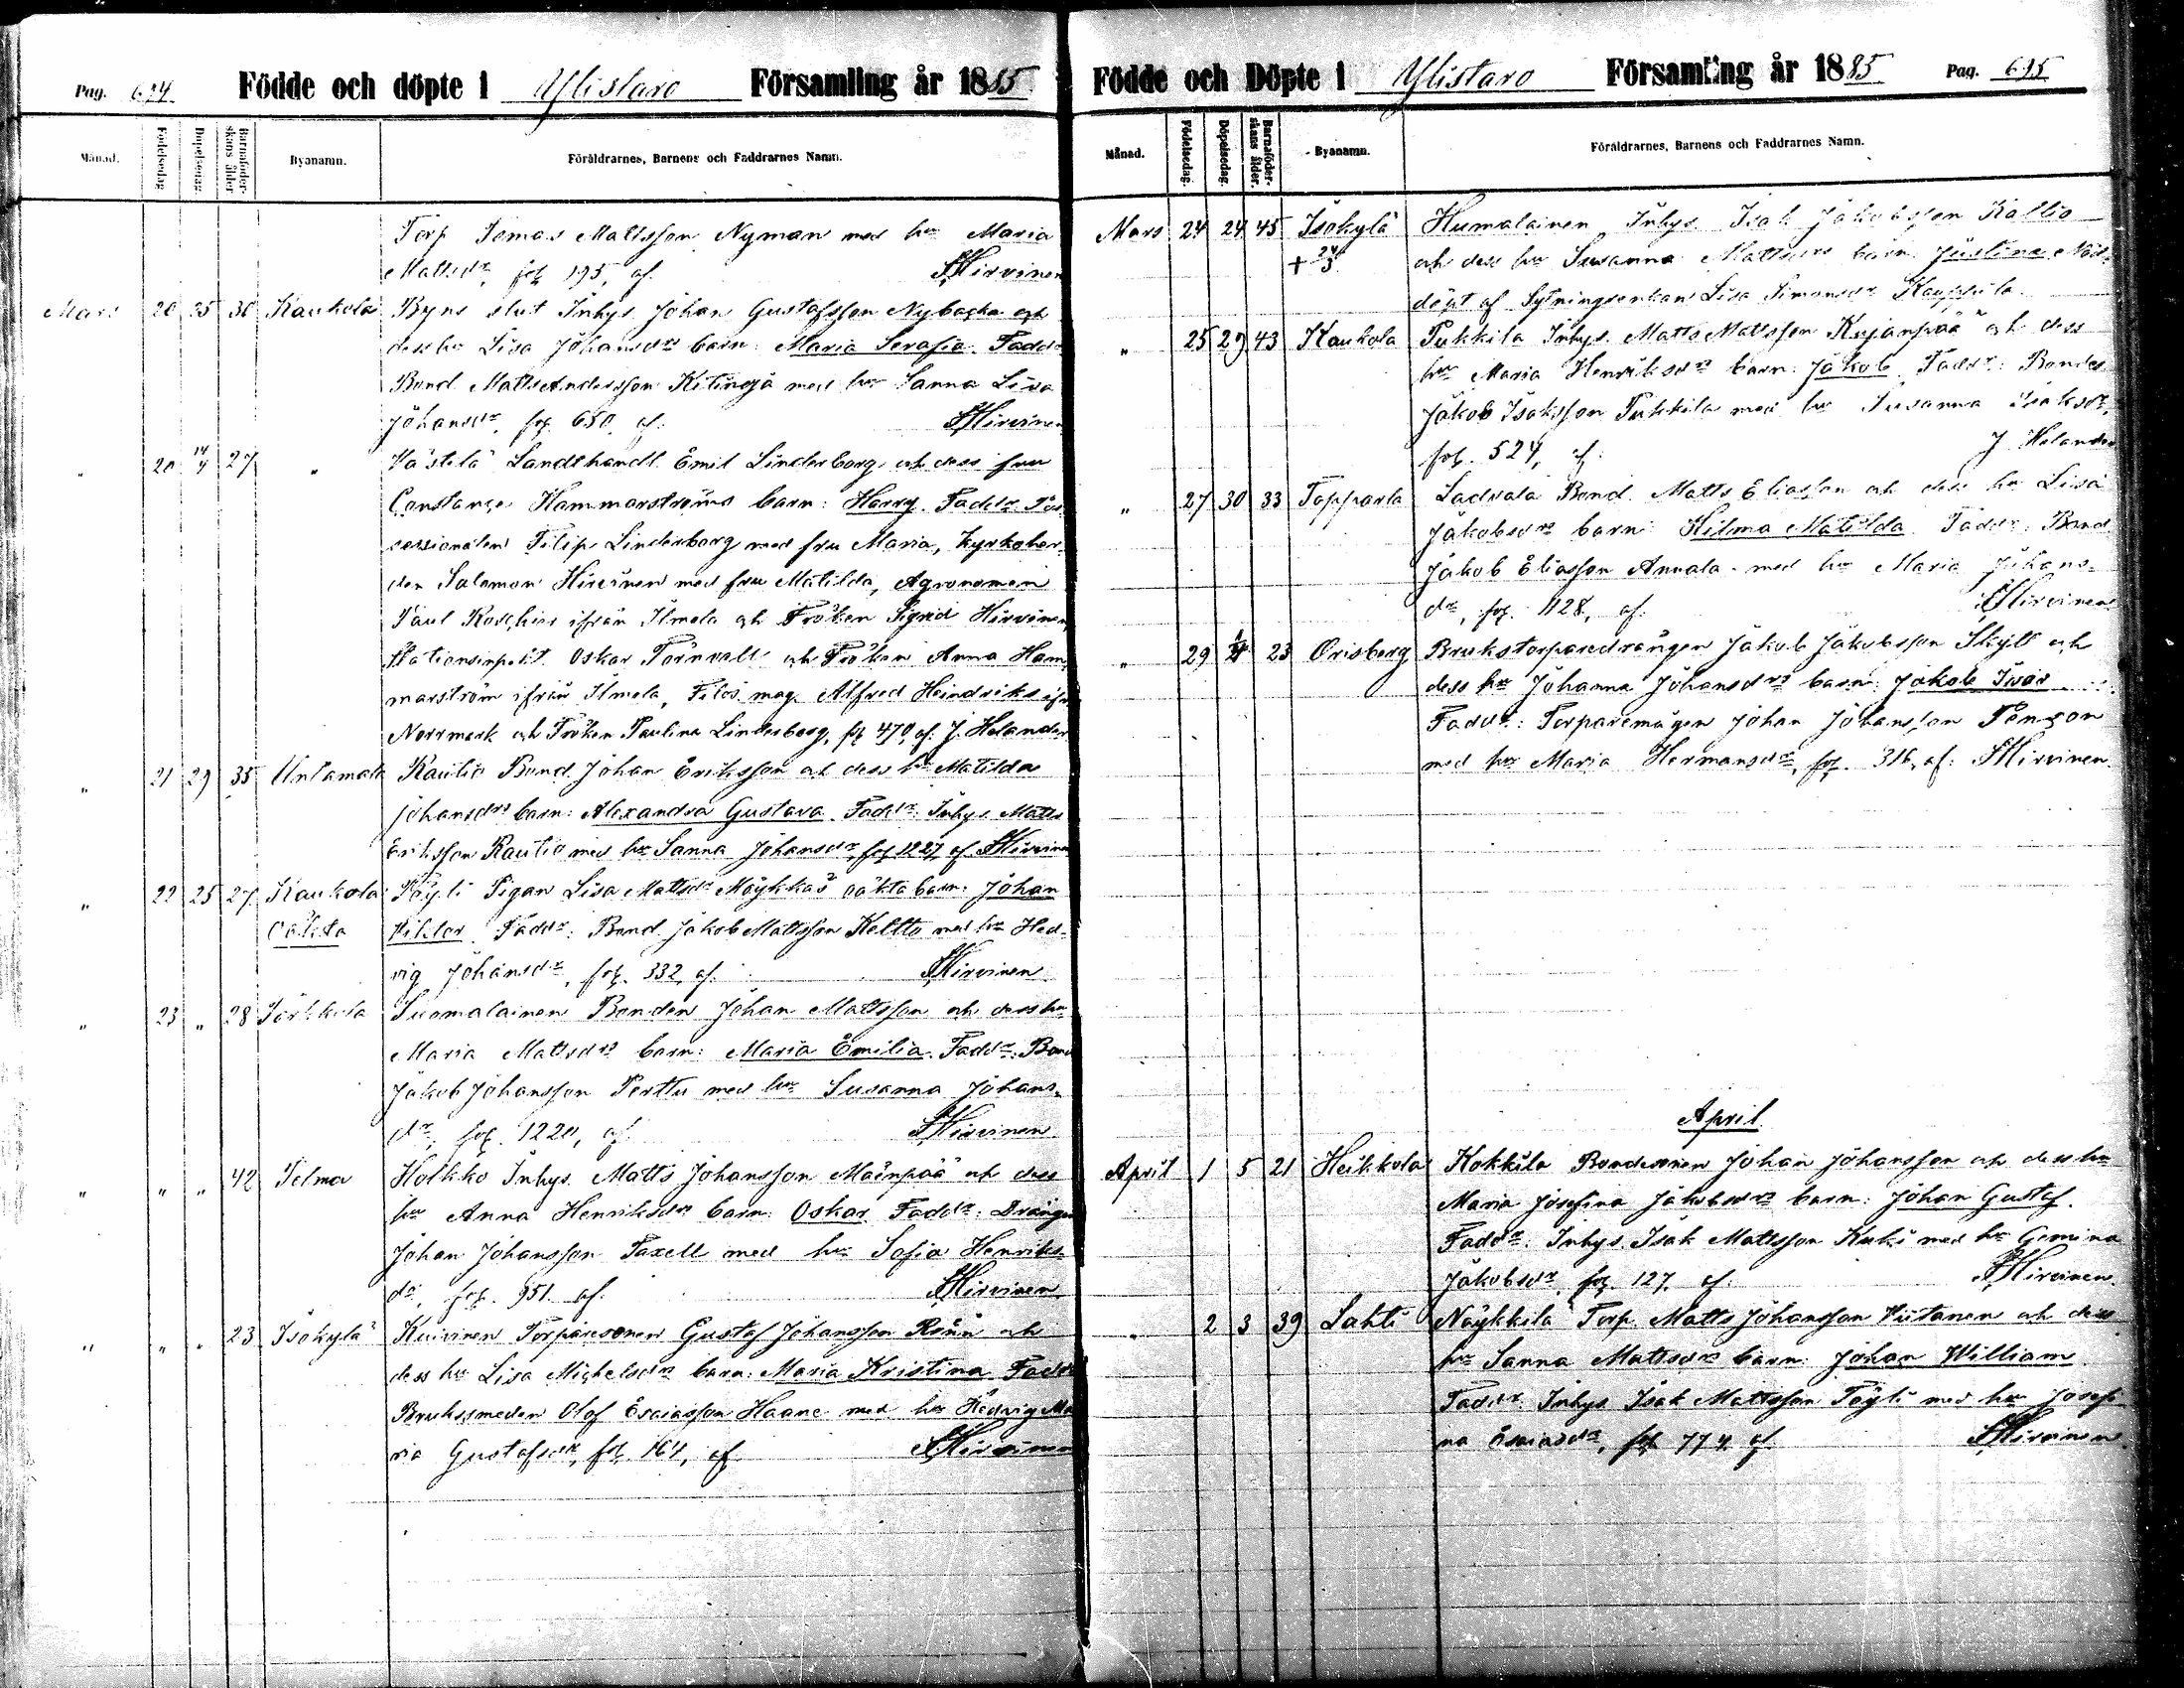 Pag. 694 Födde och döpte i Ylistaro Församling år 1885
Månad. Födelsedag Döpelsedag Barnaföderskans ålder Byanamn. Föräldrarnes, Barnens och Faddrarnes Namn.
Torp Tomas Mattsson Nyman med hu Maria
Mattsdr, fog 195, af. SHirvinen
Mars 20 25 30 Kaukola Byns slut Inhys Johan Gustafsson Nybacka och
dess hu Lisa Johansdrs barn: Maria Serafia. Faddr
Bond. Matts Andersson Kitinoja med hu Sanna Lisa
Johansdr, fog 650 af. SHirvinen
" 20 14/4 27 " Västilä Landthandl. Emil Linderborg och dess fru
Constance Hammarströms barn: Harry. Faddr: Pos-
sessionaten Filip Linderborg med fru Maria, Kyrkoher-
den Salomon Hirvinen med fru Matilda, Agronomen
Paul Roschier ifrån Ilmola och Fröken Sigrid Hirvinen,
Stationsinspekt. Oskar Törnvall och Fröken Anna Ham-
marström ifrån Ilmola, Filos. mag. Alfred Heindriks ifr.
Norrmark och Fröken Paulina Linderborg, fog 470, af. J. Helander
" 21 29 35 Untamala Rautio Bond. Johan Eriksson och dess hu Matilda
Johansdrs barn: Alexandra Gustava. Faddr: Inhys. Matts
Eriksson Rautio med hu Sanna Johansdr, fog 1227 af SHirvinen
" 22 25 27 Kaukola Töyli Pigan Lisa Mattsdr Mäykkäs oäkta barn: Johan
Oäkta Viktor. Faddr: Bond. Jakob Mattsson Keltto med hu Hed-
vig Johansdr, fog. 332, af. SHirvinen
" 23 " 28 Suomalainen Bonden Johan Mattsson och dess hu
Maria Mattsdrs barn: Maria Emilia. Faddr: Bond
Jakob Johansson Perttu med hu Susanna Johans-
dr, fog. 1220, af. SHirvinen
" " " 42 Pelma Holkko Inhys. Matts Johansson Mäenpää och dess
hu Anna Henriksdrs barn: Oskar. Faddr: Drängen
Johan Johansson Taxell med hu Sofia Henriks-
dr, fog. 951. af. SHirvinen
" " " 23 Isokylä Kuivinen Torparesonen Gustaf Johansson Rönn och
dess hu Lisa Michelsdrs barn: Maria Kristina. Faddr
Bruksmeden Olof Esaiasson Haane med hu Hedvig Ma-
ria Gustafsdr, fog. 164, af SHirvinen
Födde och Döpte i Ylistaro Församling år 1885 Pag. 695
Månad. Födelsedag. Döpelsedag. Barnaföderskans ålder. Byanamn. Föräldrarnes, Barnens och Faddrarnes Namn.
Mars 24 24 45 Isokylä Humalainen Inhys. Isak Jakobsson Kallio
+ 24/3 och dess hu Susanna Mattsdrs barn Justina Nöd-
döpt af Sytningsenkan Lisa Simonsdr Kauppila
" 25 29 43 Kaukola Pukkila Inhys. Matts Mattsson Kujanpää och dess
hu Maria Henriksdrs barn: Jakob. Faddr: Bonden
Jakob Isaksson Pukkila med hu Susanna Isaksdr,
fog. 524, af. J Helander
" 27 30 33 Topparla Ladvala Bond. Matts Eliasson och dess hu Lisa
Jakobsdrs barn: Hilma Matilda. Faddr: Bond
Jakob Eliasson Annala med hu Maria Johans-
dr, fog. 1128, af. SHirvinen
" 29 1/4 23 Orisberg Brukstorparedrängen Jakob Jakobsson Skytt och
dess hu Johanna Johansdrs barn: Jakob Ivar
Faddr: Torparemågen Johan Johansson
med hu Maria Hermansdr, fog. 316, af. SHirvinen
April
April 1 5 21 Heikkola Kokkila Bondesonen Johan Johansson och dess hu
Maria Josefina Jakobsdrs barn: Johan Gustaf.
Faddr: Inhys. Isak Mattsson Kuki med hu Gemina
Jakobsdr, fog. 127. af. SHirvinen.
" 2 3 39 Lahti Näykkilä Torp. Matts Johansson Viitanen och dess
hu Sanna Mattsdrs barn: Johan William
Faddr: Inhys. Isak Mattsson Töyli med hu Josefi-
na Esaiasdr, fog 774. af SHirvinen.